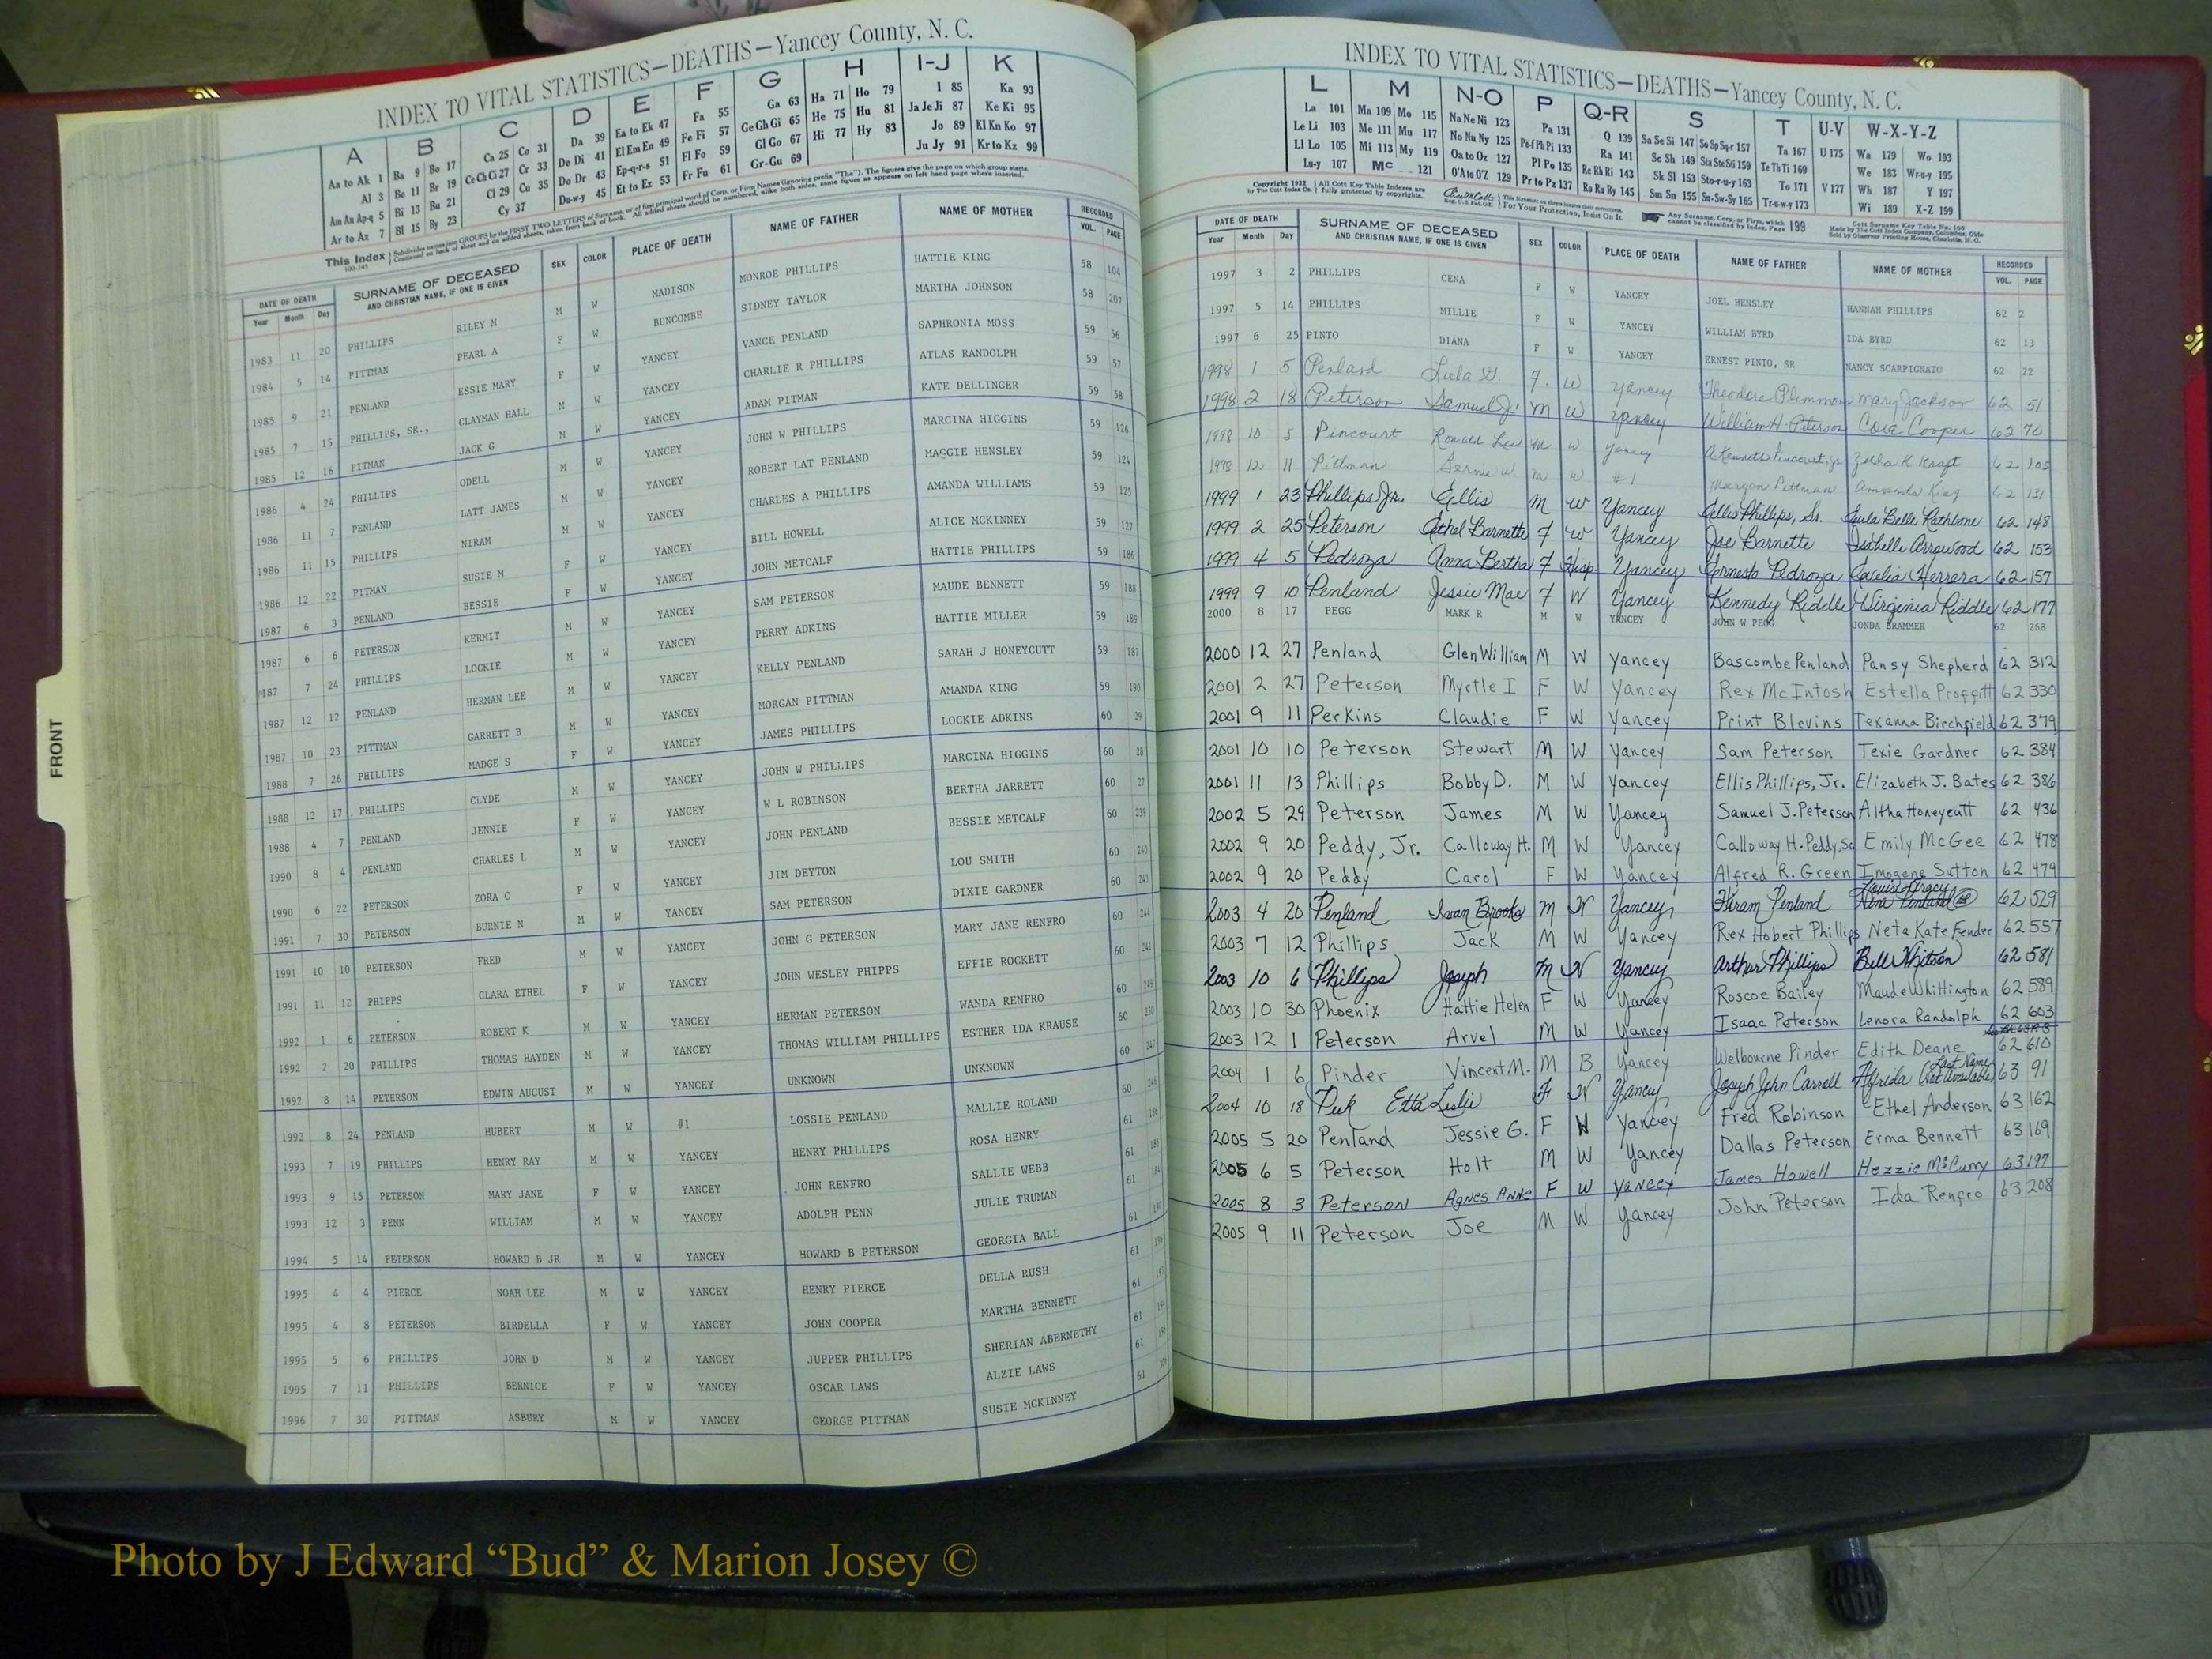 INDEX TO VITAL STATISTICS—DEATHS—Yancey County, N. C.
A B C D E F G H I-J K
Aa to Ak 1 Ba 9 Bo 17 Ca 25 Co 31 Da 39 Ea to Ek 47 Fa 55 Ga 63 Ha 71 Ho 79 I 85 Ka 93
Al 3 Be 11 Br 19 Ce Ch Ci 27 Cr 33 De Di 41 El Em En 49 Fe Fi 57 Ge Gh Gi 65 He 75 Hu 81 Ja Je Ji 87 Ke Ki 95
Am An Ap-q 5 Bi 13 Bu 21 Cl 29 Cu 35 Do Dr 43 Ep-q-r-s 51 Fl Fo 59 Gl Go 67 Hi 77 Hy 83 Jo 89 Kl Kn Ko 97
Ar to Az 7 Bl 15 By 23 Cy 37 Du-w-y 45 Et to Ez 53 Fr Fu 61 Gr-Gu 69 Ju Jy 91 Kr to Kz 99
This Index Subdivides names into GROUPS by the FIRST TWO LETTERS of Surname, or of first principal word of Corp. or Firm Names (ignoring prefix "The"). The figures give the page on which group starts.
Continued on back of sheet and on added sheets, taken from back of book. All added sheets should be numbered, alike both sides, same figure as appears on left hand page where inserted.
DATE OF DEATH SURNAME OF DECEASED SEX COLOR PLACE OF DEATH NAME OF FATHER NAME OF MOTHER RECORDED
Year Month Day AND CHRISTIAN NAME, IF ONE IS GIVEN VOL. PAGE
1983 11 20 PHILLIPS RILEY M M W MADISON MONROE PHILLIPS HATTIE KING 58 104
1984 5 14 PITTMAN PEARL A F W BUNCOMBE SIDNEY TAYLOR MARTHA JOHNSON 58 207
1985 9 21 PENLAND ESSIE MARY F W YANCEY VANCE PENLAND SAPHRONIA MOSS 59 56
1985 7 15 PHILLIPS, SR., CLAYMAN HALL M W YANCEY CHARLIE R PHILLIPS ATLAS RANDOLPH 59 57
1985 12 16 PITMAN JACK G M W YANCEY ADAM PITMAN KATE DELLINGER 59 58
1986 4 24 PHILLIPS ODELL M W YANCEY JOHN W PHILLIPS MARCINA HIGGINS 59 126
1986 11 7 PENLAND LATT JAMES M W YANCEY ROBERT LAT PENLAND MAGGIE HENSLEY 59 124
1986 11 15 PHILLIPS NIRAM M W YANCEY CHARLES A PHILLIPS AMANDA WILLIAMS 59 125
1986 12 22 PITMAN SUSIE M F W YANCEY BILL HOWELL ALICE MCKINNEY 59 127
1987 6 3 PENLAND BESSIE F W YANCEY JOHN METCALF HATTIE PHILLIPS 59 186
1987 6 6 PETERSON KERMIT M W YANCEY SAM PETERSON MAUDE BENNETT 59 188
187 7 24 PHILLIPS LOCKIE M W YANCEY PERRY ADKINS HATTIE MILLER 59 189
1987 12 12 PENLAND HERMAN LEE M W YANCEY KELLY PENLAND SARAH J HONEYCUTT 59 187
1987 10 23 PITTMAN GARRETT B M W YANCEY MORGAN PITTMAN AMANDA KING 59 190
1988 7 26 PHILLIPS MADGE S F W YANCEY JAMES PHILLIPS LOCKIE ADKINS 60 29
1988 12 17 PHILLIPS CLYDE M W YANCEY JOHN W PHILLIPS MARCINA HIGGINS 60 28
1988 4 7 PENLAND JENNIE F W YANCEY W L ROBINSON BERTHA JARRETT 60 27
1990 8 4 PENLAND CHARLES L M W YANCEY JOHN PENLAND BESSIE METCALF 60 239
1990 6 22 PETERSON ZORA C F W YANCEY JIM DEYTON LOU SMITH 60 240
1991 7 30 PETERSON BURNIE N M W YANCEY SAM PETERSON DIXIE GARDNER 60 243
1991 10 10 PETERSON FRED M W YANCEY JOHN G PETERSON MARY JANE RENFRO 60 244
1991 11 12 PHIPPS CLARA ETHEL F W YANCEY JOHN WESLEY PHIPPS EFFIE ROCKETT 60 241
1992 1 6 PETERSON ROBERT K M W YANCEY HERMAN PETERSON WANDA RENFRO 60 249
1992 2 20 PHILLIPS THOMAS HAYDEN M W YANCEY THOMAS WILLIAM PHILLIPS ESTHER IDA KRAUSE 60 250
1992 8 14 PETERSON EDWIN AUGUST M W YANCEY UNKNOWN UNKNOWN 60 247
1992 8 24 PENLAND HUBERT M W #1 LOSSIE PENLAND MALLIE ROLAND 60
1993 7 19 PHILLIPS HENRY RAY M W YANCEY HENRY PHILLIPS ROSA HENRY 61
1993 9 15 PETERSON MARY JANE F W YANCEY JOHN RENFRO SALLIE WEBB 61
1993 12 3 PENN WILLIAM M W YANCEY ADOLPH PENN JULIE TRUMAN 61
1994 5 14 PETERSON HOWARD B JR M W YANCEY HOWARD B PETERSON GEORGIA BALL 61
1995 4 4 PIERCE NOAH LEE M W YANCEY HENRY PIERCE DELLA RUSH 61
1995 4 8 PETERSON BIRDELLA F W YANCEY JOHN COOPER MARTHA BENNETT 61
1995 5 6 PHILLIPS JOHN D M W YANCEY JUPPER PHILLIPS SHERIAN ABERNETHY 61
1995 7 11 PHILLIPS BERNICE F W YANCEY OSCAR LAWS ALZIE LAWS 61
1996 7 30 PITTMAN ASBURY M W YANCEY GEORGE PITTMAN SUSIE MCKINNEY 61
FRONT
INDEX TO VITAL STATISTICS—DEATHS—Yancey County, N. C.
L M N-O P Q-R S T U-V W-X-Y-Z
La 101 Ma 109 Mo 115 Na Ne Ni 123 Pa 131 Q 139 Sa Se Si 147 So Sp Sq-r 157 Ta 167 U 175 Wa 179 Wo 193
Le Li 103 Me 111 Mu 117 No Nu Ny 125 Pe-f Ph Pi 133 Ra 141 Sc Sh 149 Sta Ste Sti 159 Te Th Ti 169 We 183 Wr-u-y 195
Ll Lo 105 Mi 113 My 119 Oa to Oz 127 Pl Po 135 Re Rh Ri 143 Sk Sl 153 Sto-r-u-y 163 To 171 V 177 Wh 187 Y 197
Lu-y 107 Mc 121 O'A to O'Z 129 Pr to Pz 137 Ro Ru Ry 145 Sm Sn 155 Su-Sw-Sy 165 Tr-u-w-y 173 Wi 189 X-Z 199
Copyright 1932 by The Cott Index Co. All Cott Key Table Indexes are fully protected by copyrights. For Your Protection, Insist On It. Any Surname, Corp. or Firm, which cannot be classified by Index, Page 199
DATE OF DEATH SURNAME OF DECEASED SEX COLOR PLACE OF DEATH NAME OF FATHER NAME OF MOTHER RECORDED
Year Month Day AND CHRISTIAN NAME, IF ONE IS GIVEN VOL. PAGE
1997 3 2 PHILLIPS CENA F W YANCEY JOEL HENSLEY HANNAH PHILLIPS 62 2
1997 5 14 PHILLIPS MILLIE F W YANCEY WILLIAM BYRD IDA BYRD 62 13
1997 6 25 PINTO DIANA F W YANCEY ERNEST PINTO, SR NANCY SCARPIGNATO 62 22
1998 1 5 Penland Lula G. F. W Yancey Theodore Plemmons Mary Jackson 62 51
1998 2 18 Peterson Samuel J. M W Yancey William H. Peterson Cora Cooper 62 70
1998 10 5 Pincourt Ronald Lee M W Yancey A Kenneth Pincourt, jr Zella K. Kraft 62 105
1998 12 11 Pittman W M W #1 Morgan Pittman Amanda King 62 131
1999 1 23 Phillips Jr. Ellis M W Yancey Ellis Phillips, Sr. Lula Belle Rathbone 62 148
1999 2 25 Peterson Ethel Barnette F W Yancey Joe Barnette Isabelle Arrowood 62 153
1999 4 5 Pedroza Anna Bertha F Hisp. Yancey Ernesto Pedroza Cecelia Herrera 62 157
1999 9 10 Penland Jessie Mae F W Yancey Kennedy Riddle Virginia Riddle 62 177
2000 8 17 PEGG MARK R M W YANCEY JOHN W PEGG JONDA BRAMMER 62 268
2000 12 27 Penland Glen William M W Yancey Bascombe Penland Pansy Shepherd 62 312
2001 2 27 Peterson Myrtle I F W Yancey Rex McIntosh Estella Proffitt 62 330
2001 9 11 Perkins Claudie F W Yancey Print Blevins Texanna Birchfield 62 379
2001 10 10 Peterson Stewart M W Yancey Sam Peterson Texie Gardner 62 384
2001 11 13 Phillips Bobby D. M W Yancey Ellis Phillips, Jr. Elizabeth J. Bates 62 386
2002 5 29 Peterson James M W Yancey Samuel J. Peterson Altha Honeycutt 62 436
2002 9 20 Peddy, Jr. Calloway H. M W Yancey Calloway H. Peddy, Sr Emily McGee 62 478
2002 9 20 Peddy Carol F W Yancey Alfred R. Green Imogene Sutton 62 479
2003 4 20 Penland Ivan Brooks M W Yancey Hiram Penland Louise Tracy 62 529
2003 7 12 Phillips Jack M W Yancey Rex Hobert Phillips Neta Kate Fender 62 557
2003 10 6 Phillips Joseph M W Yancey Arthur Phillips Bell Whitson 62 581
2003 10 30 Phoenix Hattie Helen F W Yancey Roscoe Bailey Maude Whittington 62 589
2003 12 1 Peterson Arvel M W Yancey Isaac Peterson Lenora Randolph 62 603
2004 1 6 Pinder Vincent M. M B Yancey Welbourne Pinder Edith Deane 62 610
2004 10 18 Peek Etta Leslie F W Yancey Joseph John Carroll Alfrida (Last Name Not Available) 63 91
2005 5 20 Penland Jessie G. F W Yancey Fred Robinson Ethel Anderson 63 162
2005 6 5 Peterson Holt M W Yancey Dallas Peterson Erma Bennett 63 169
2005 8 3 Peterson Agnes Anne F W Yancey James Howell Hezzie McCurry 63 197
2005 9 11 Peterson Joe M W Yancey John Peterson Ida Renfro 63 208
Photo by J Edward “Bud” & Marion Josey ©